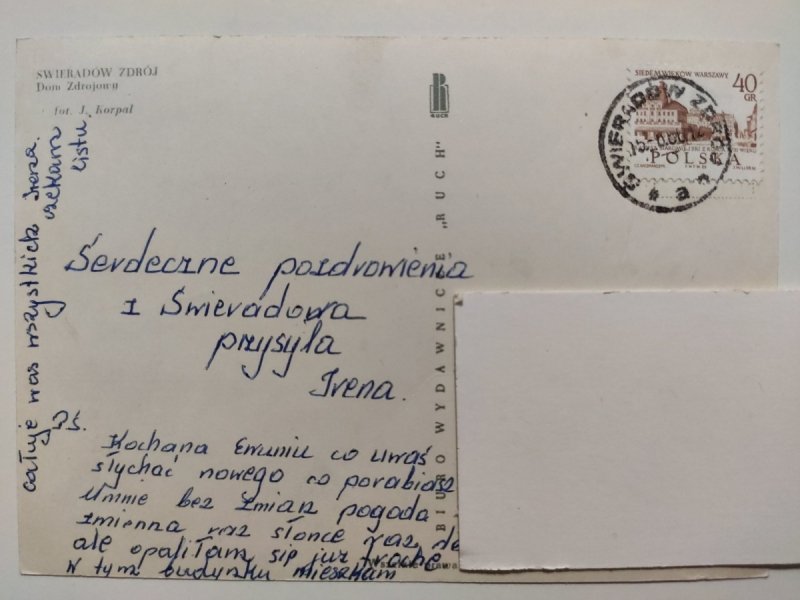 ŚWIERADÓW ZDRÓJ
Dom Zdrojowy
fot. J. Korpal
R
RUCH
BIURO WYDAWNICZE „RUCH"
SIEDEM WIEKÓW WARSZAWY
40
GR
POLSKA
ŚWIERADÓW ZDRÓJ
a
Serdeczne pozdrowienia
z Świeradowa
przysyła
Irena.
PŚ.
Kochana Emuniu co uwaś
słychać nowego co porabiasz
Umnie bez zmian pogoda
zmienna raz słonce raz de
ale opaliłam się już trochę
W tym budynku mieszkam
całuje was wszystkich Irena.
czekam
listu.